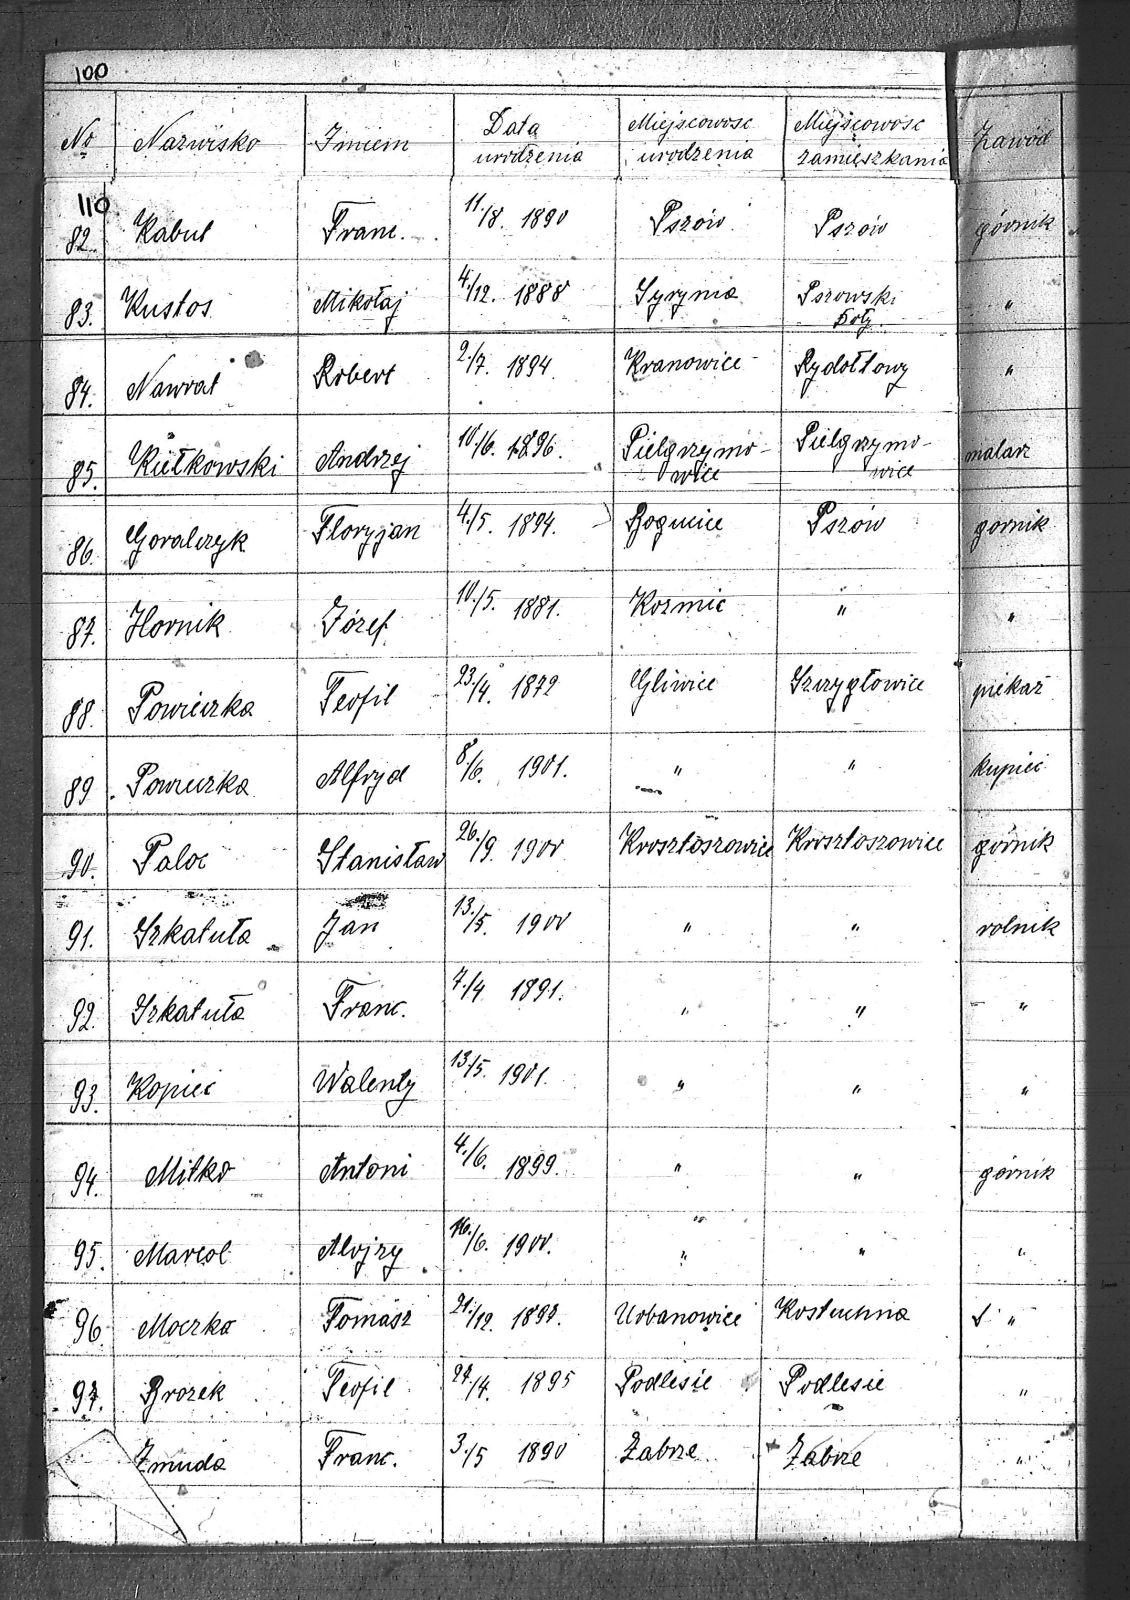 100
No Nazwisko Imiem Data urodzenia Miejscowość urodzenia Miejscowość zamieszkania Zawód
110
82. Kabut Franc. 11./8. 1890 Pszów Pszów górnik
83. Kustos Mikołaj 4./12. 1888 Syrynia Pszowski Doły "
84. Nawrat Robert 2./7. 1894 Kranowice Rydołtowy "
85. Kiełkowski Andrzej 10./6. 1896. Pielgrzymowice Pielgrzymowice malarz
86. Goralczyk Floryjan 4./5. 1894. Bogucice Pszów gornik
87. Hornik Józef 10./5. 1881. Kozmic " "
88. Powieczka Teofil 23./4. 1872 Gliwice Szczygłowice piekaż
89. Powieczka Alfryd 8./6. 1901. " " kupiec
90. Paloc Stanisław 26./9. 1900 Krosztoszowice Krosztoszowice górnik
91. Szkatuła Jan 13./5. 1900 " " rolnik
92. Szkatuła Franc. 7./4 1891. " " "
93. Kopiec Walenty 13./5. 1901. " " "
94. Mitko Antoni 4./6. 1899. " " górnik
95. Marcol Alojzy 16./6. 1900. " " "
96. Moczko Tomasz 21./12. 1897. Urbanowice Kostuchna "
97. Brozek Teofil 27./4. 1895 Podlesie Podlesie "
Zmuda Franc. 3./5 1890 Zabrze Zabrze "